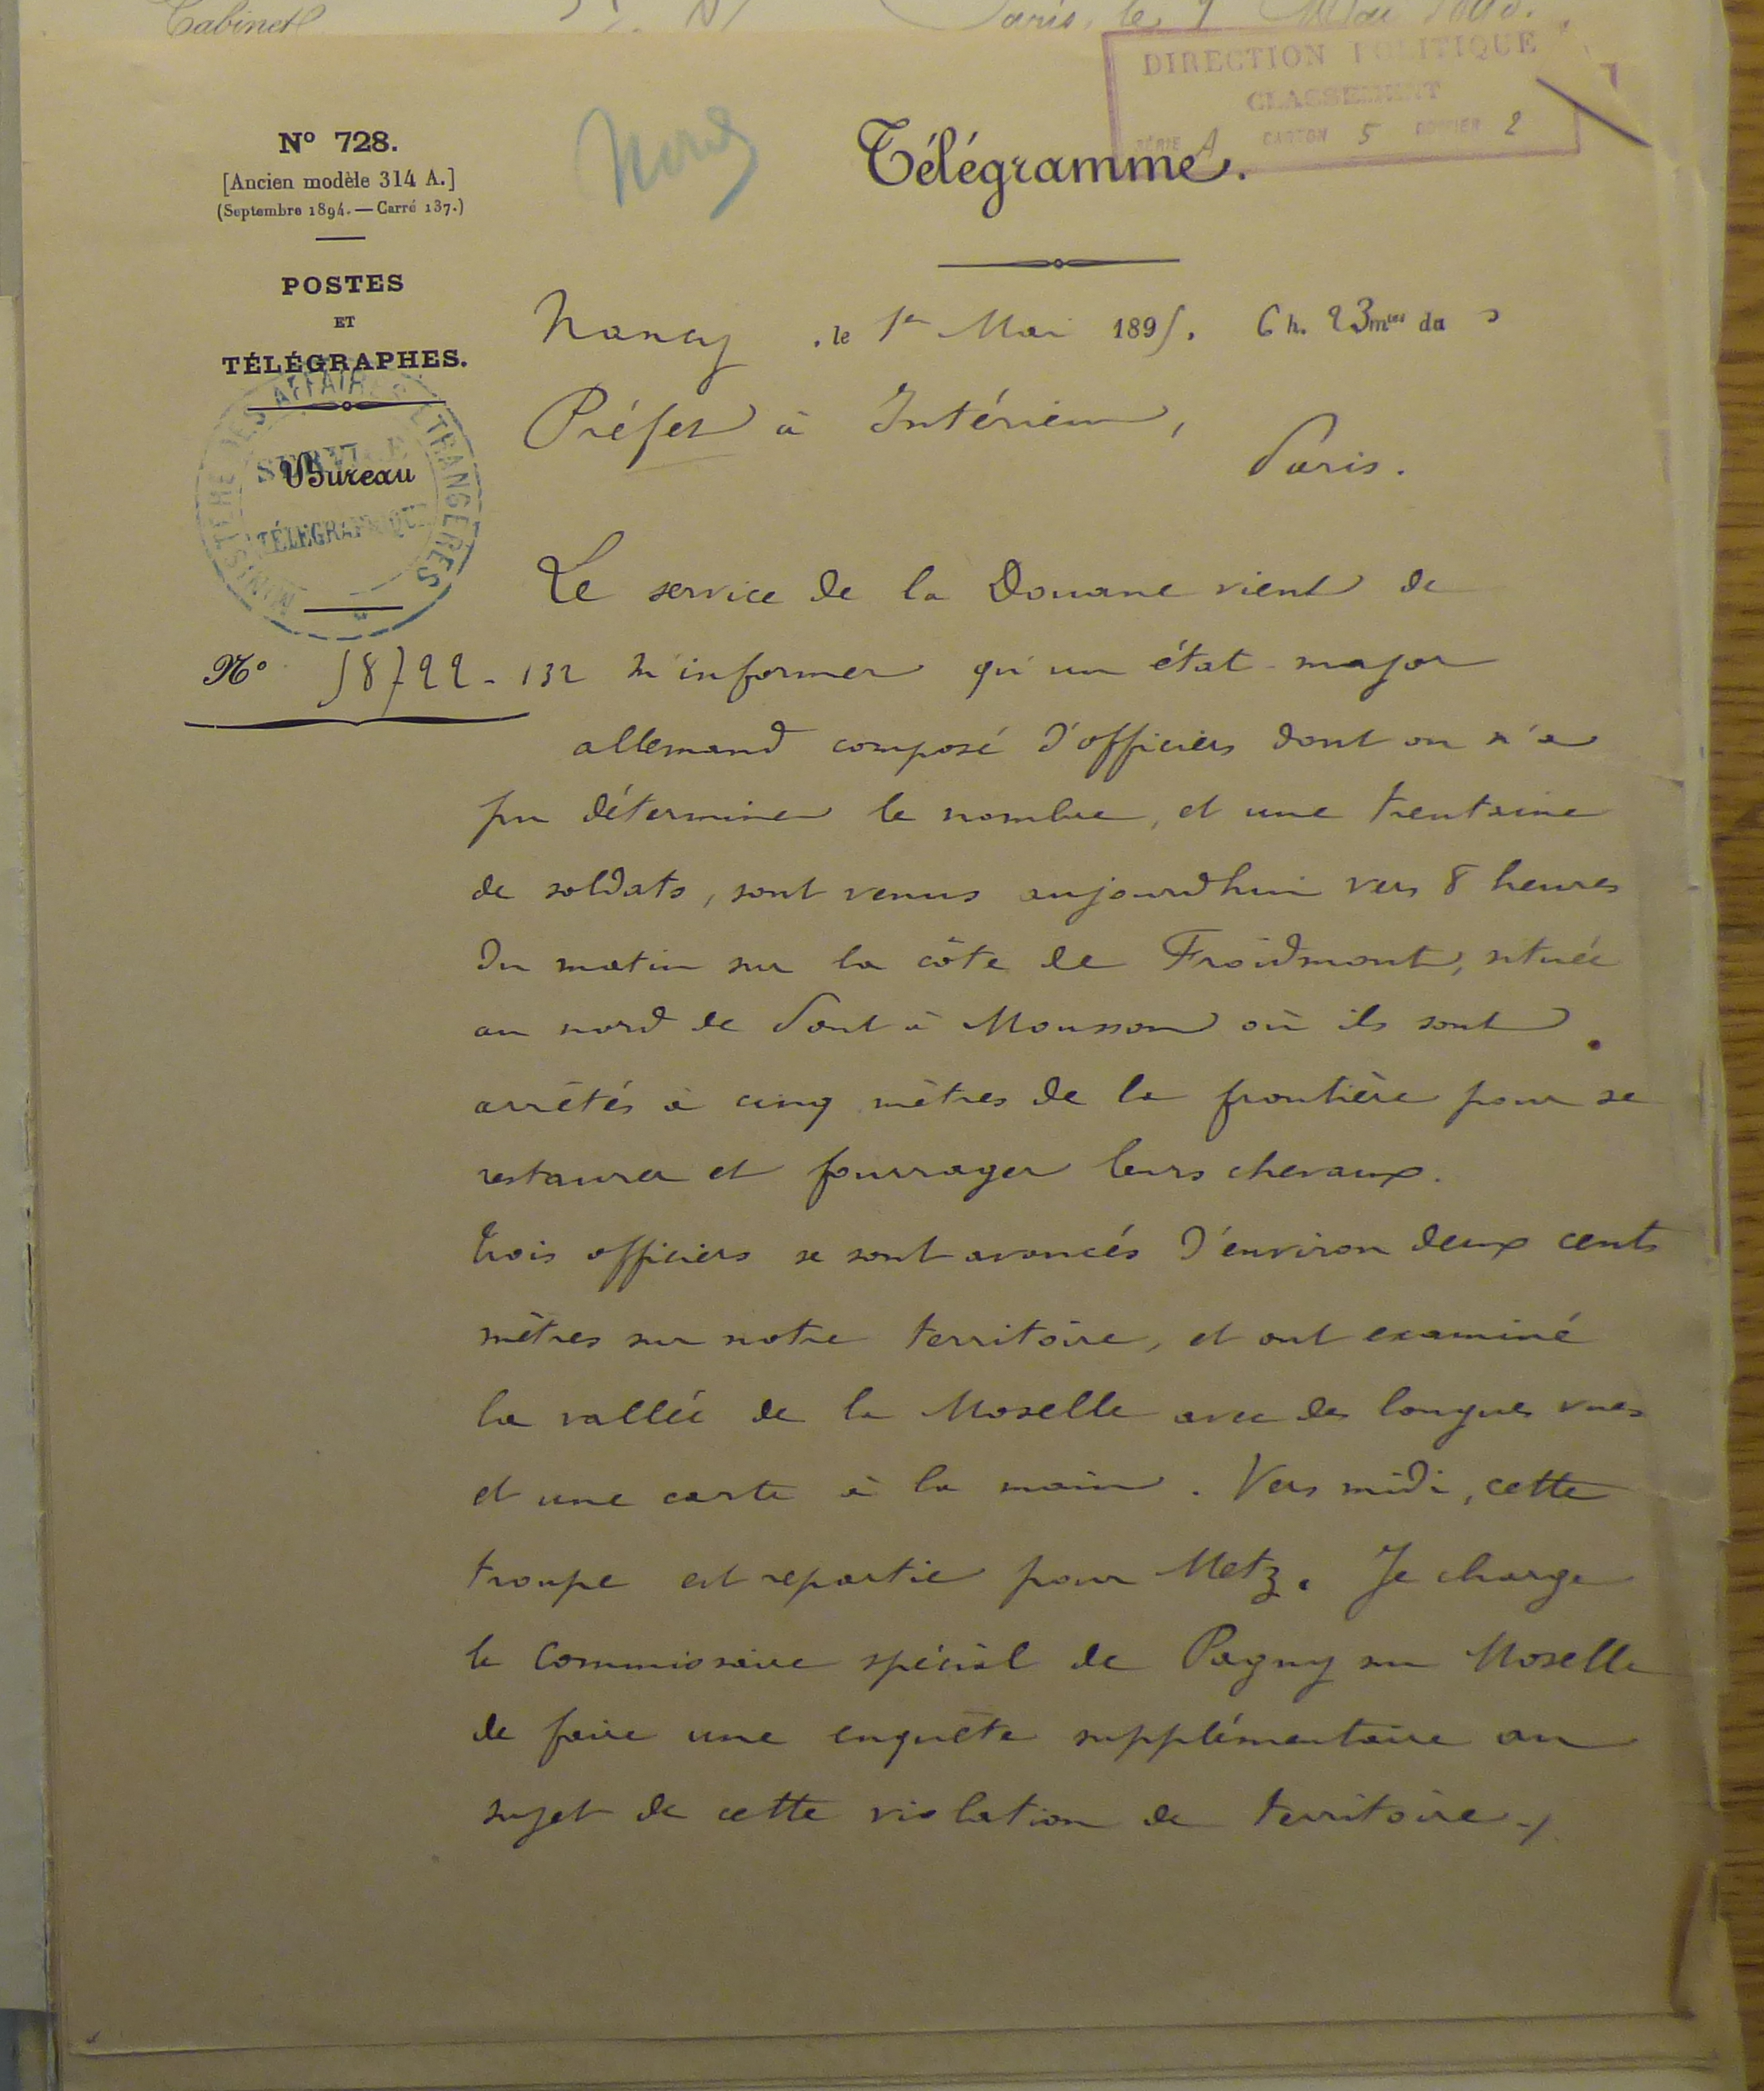 Cabinet
Paris, le
DIRECTION POLITIQUE
CLASSEMENT
SÉRIE A CARTON 5 DOSSIER 2
Nº 728.
[Ancien modèle 314 A.]
(Septembre 1894. — Carré 137.)
Nord
Télégramme.
POSTES
ET
TÉLÉGRAPHES.
MINISTÈRE DES AFFAIRES ÉTRANGÈRES
SERVICE
TÉLÉGRAPHIQUE
Bureau
Nancy, le 1er Mai 1895. 6 h. 23mes du s
Préfet à Intérieur,
Paris.
Nº 58722 - 132
Le service de la Douane vient de
m'informer qu'un état-major
allemand composé d'officiers dont on n'a
pu déterminer le nombre, et une trentaine
de soldats, sont venus aujourd'hui vers 8 heures
du matin sur la côte de Froidmont, située
au nord de Pont à Mousson où ils sont
arrêtés à cinq mètres de la frontière pour se
restaurer et fourrager leurs chevaux.
Trois officiers se sont avancés d'environ deux cents
mètres sur notre territoire, et ont examiné
la vallée de la Moselle avec des longues vues
et une carte à la main. Vers midi, cette
troupe est repartie pour Metz. Je charge
le Commissaire spécial de Pagny sur Moselle
de faire une enquête supplémentaire au
sujet de cette violation de territoire./.